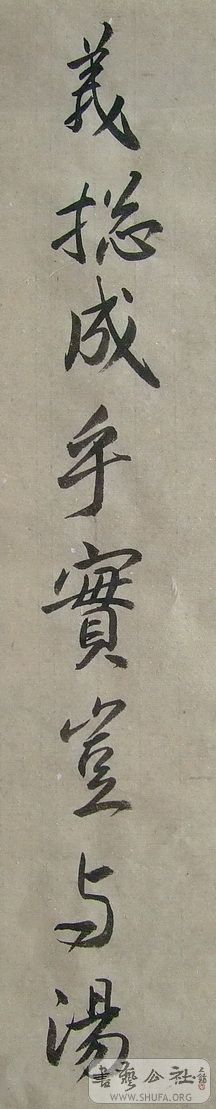 義揔成乎實豈与湯
書藝公社
WWW.SHUFA.ORG